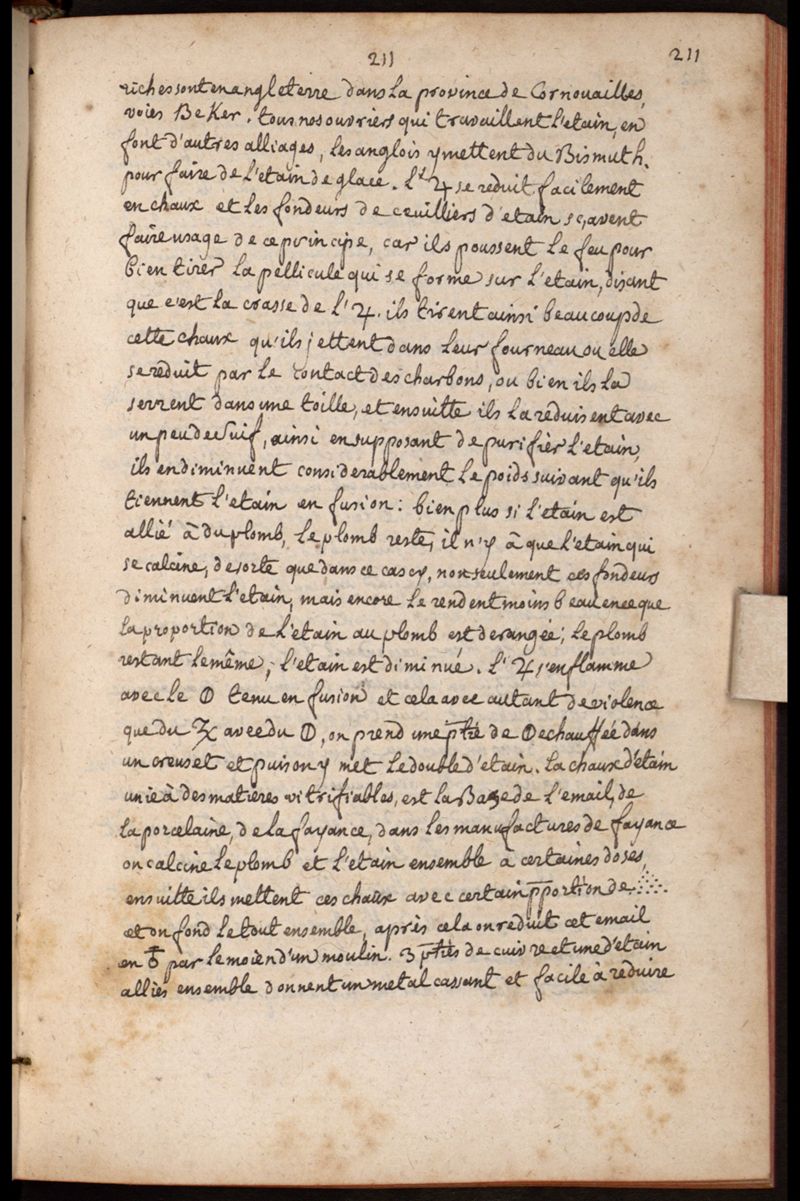 211 211
riches sont en angleterre dans La province de Cornouailles,
voies BeKer. tous nos ouvriers qui travaillent L'etain, en
font d'autres alliages, les anglois y mettent du Bismuth.
pour faire de L'etain de glace. L't ♃ se reduit facilement
en chaux et Les fondeurs de ceuilliers d'etain sçavent
faire usage de ce principe, car ils poussent Le feu pour
bien tirer La pellicule qui se forme sur L'etain, disant
que c'est La crasse de L'♃. ils tirent ainsi beaucoup de
cette chaux qu'ils jettent dans Leur fourneau ou elle
se reduit par Le contact des charbons, ou bien ils La
serrent dans une toille, et ensuitte ils La reduisent avec
un peu de Suif, ainsi en supposant de purifier L'etain,
ils en diminuent considerablement Le poids suivant qu'ils
tiennent L'etain en fusion: bien plus si L'etain est
allié à du plomb, Le plomb reste, il n'y à que L'etain qui
se calcine, de sorte que dans ce cas cy, non seulement ces fondeurs
diminuent L'etain, mais encore Le rendent moins beau en ce que
La proportion de L'etain au plomb est derangée; Le plomb
restant Le même, L'etain est diminué. L'♃ s'enflamme
avec Le 🜕 tenu en fusion et cela avec autant de violence
que du avec du 🜕, on prend une ptie de 🜕 echauffée dans
un creuset et puis on y met Le double d'etain. La chaux d'étain
unie à des matieres vitrifiables, est La Baze de L'email, de
La porcelaine, de La fayance, dans Les manufactures de fayance
on calcine Le plomb et L'etain ensemble à certaines doses,
ensuitte ils mettent ces chaux avec certain pportion de
et on fond Le tout ensemble, après cela on reduit cet email
en par Le moien d'un moulin. 3 pties de cuivre et une d'etain
alliès ensemble donnent un metal cassant et facile à réduire